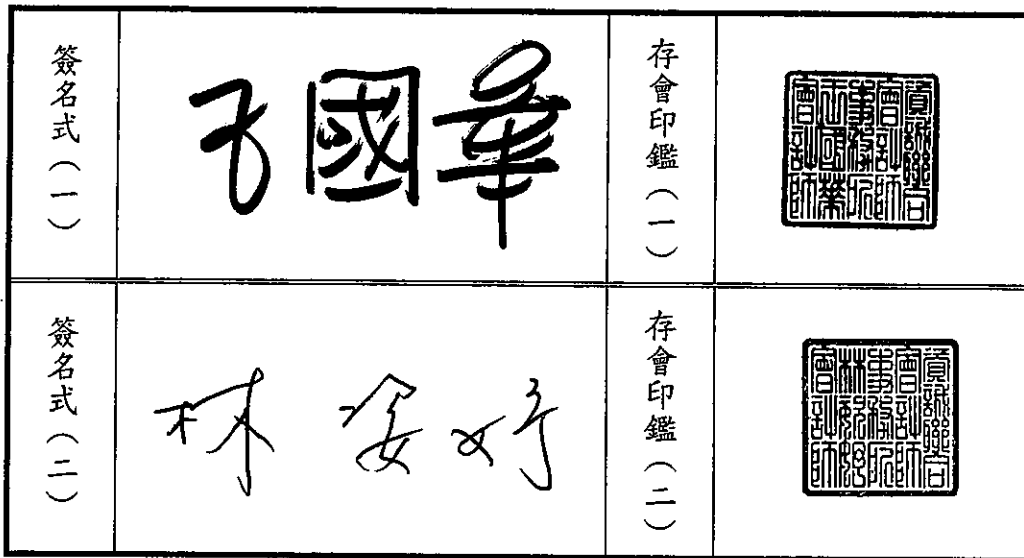 簽名式（一）
王國華
存會印鑑（一）
資誠聯合
會計師
事務所
王國華
會計師
簽名式（二）
林姿妤
存會印鑑（二）
資誠聯合
會計師
事務所
林姿妤
會計師